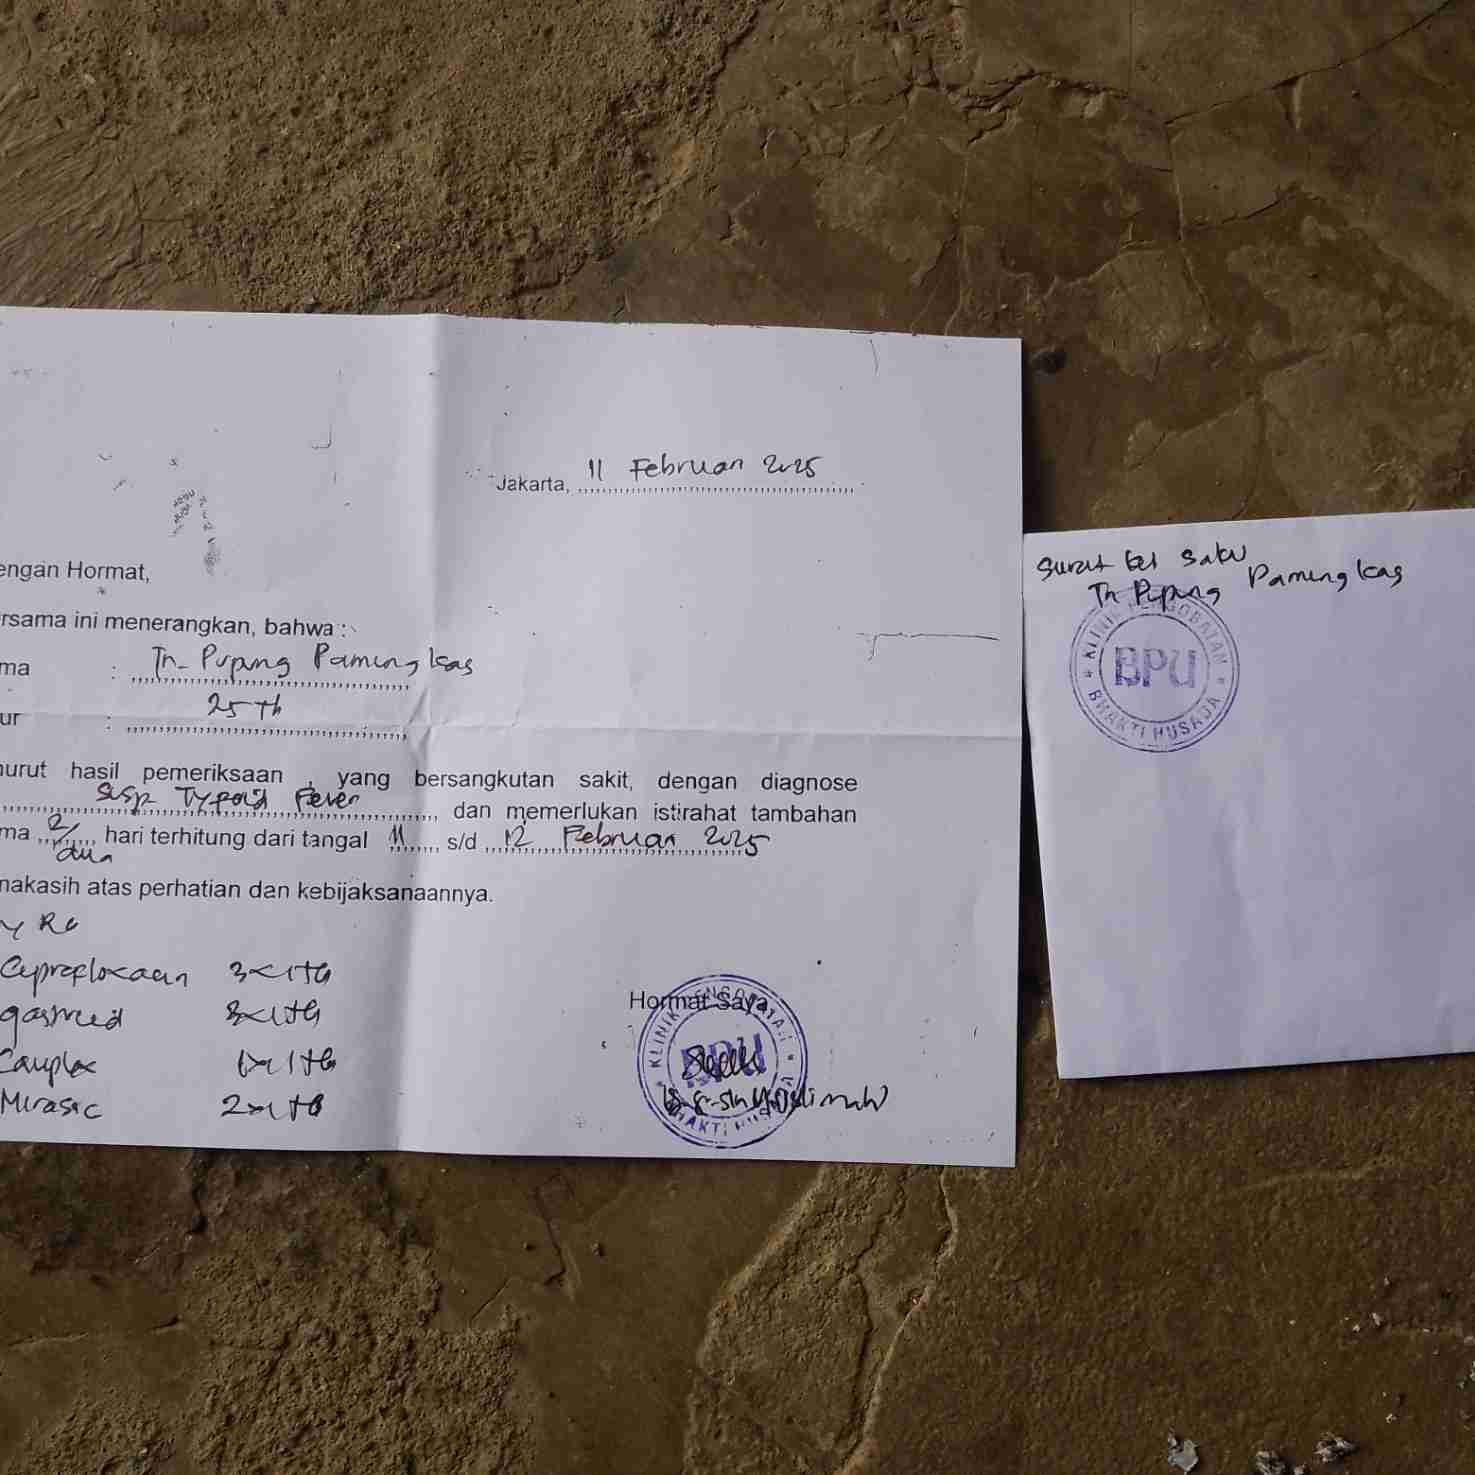 Jakarta, 11 Februari 2025
engan Hormat,
rsama ini menerangkan, bahwa :
ma : Tn. Pupung Pamungkas
ur : 25 th
nurut hasil pemeriksaan , yang bersangkutan sakit, dengan diagnose
Susp Typoid Fever dan memerlukan istirahat tambahan
ma 2/ hari terhitung dari tangal 11 s/d 12 Februari 2025
dua
nakasih atas perhatian dan kebijaksanaannya.
Ciprofloxacin 3x1 tb
gasmed 3x1 tb
1x1 tb
Mirasic 2x1 tb
Hormat Saya
KLINIK PENGOBATAN
BPU
BHAKTI HUSADA
Surat ket sakit
Tn Pupung Pamungkas
KLINIK PENGOBATAN
BPU
BHAKTI HUSADA